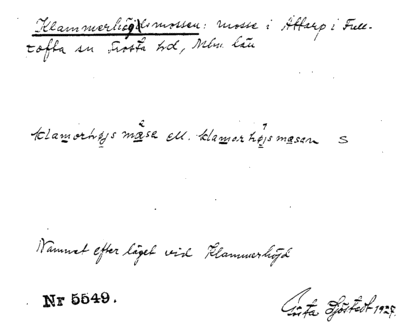 Klammerhöjdsmossen: mosse i Attarp i Full-
tofta sn Frosta hd, Mlm. län
klamorhøjs måse ell. klamorhøjsmasen S
Namnet efter läget vid Klammerhöjd
Nr 5549.
Gösta Sjöstedt